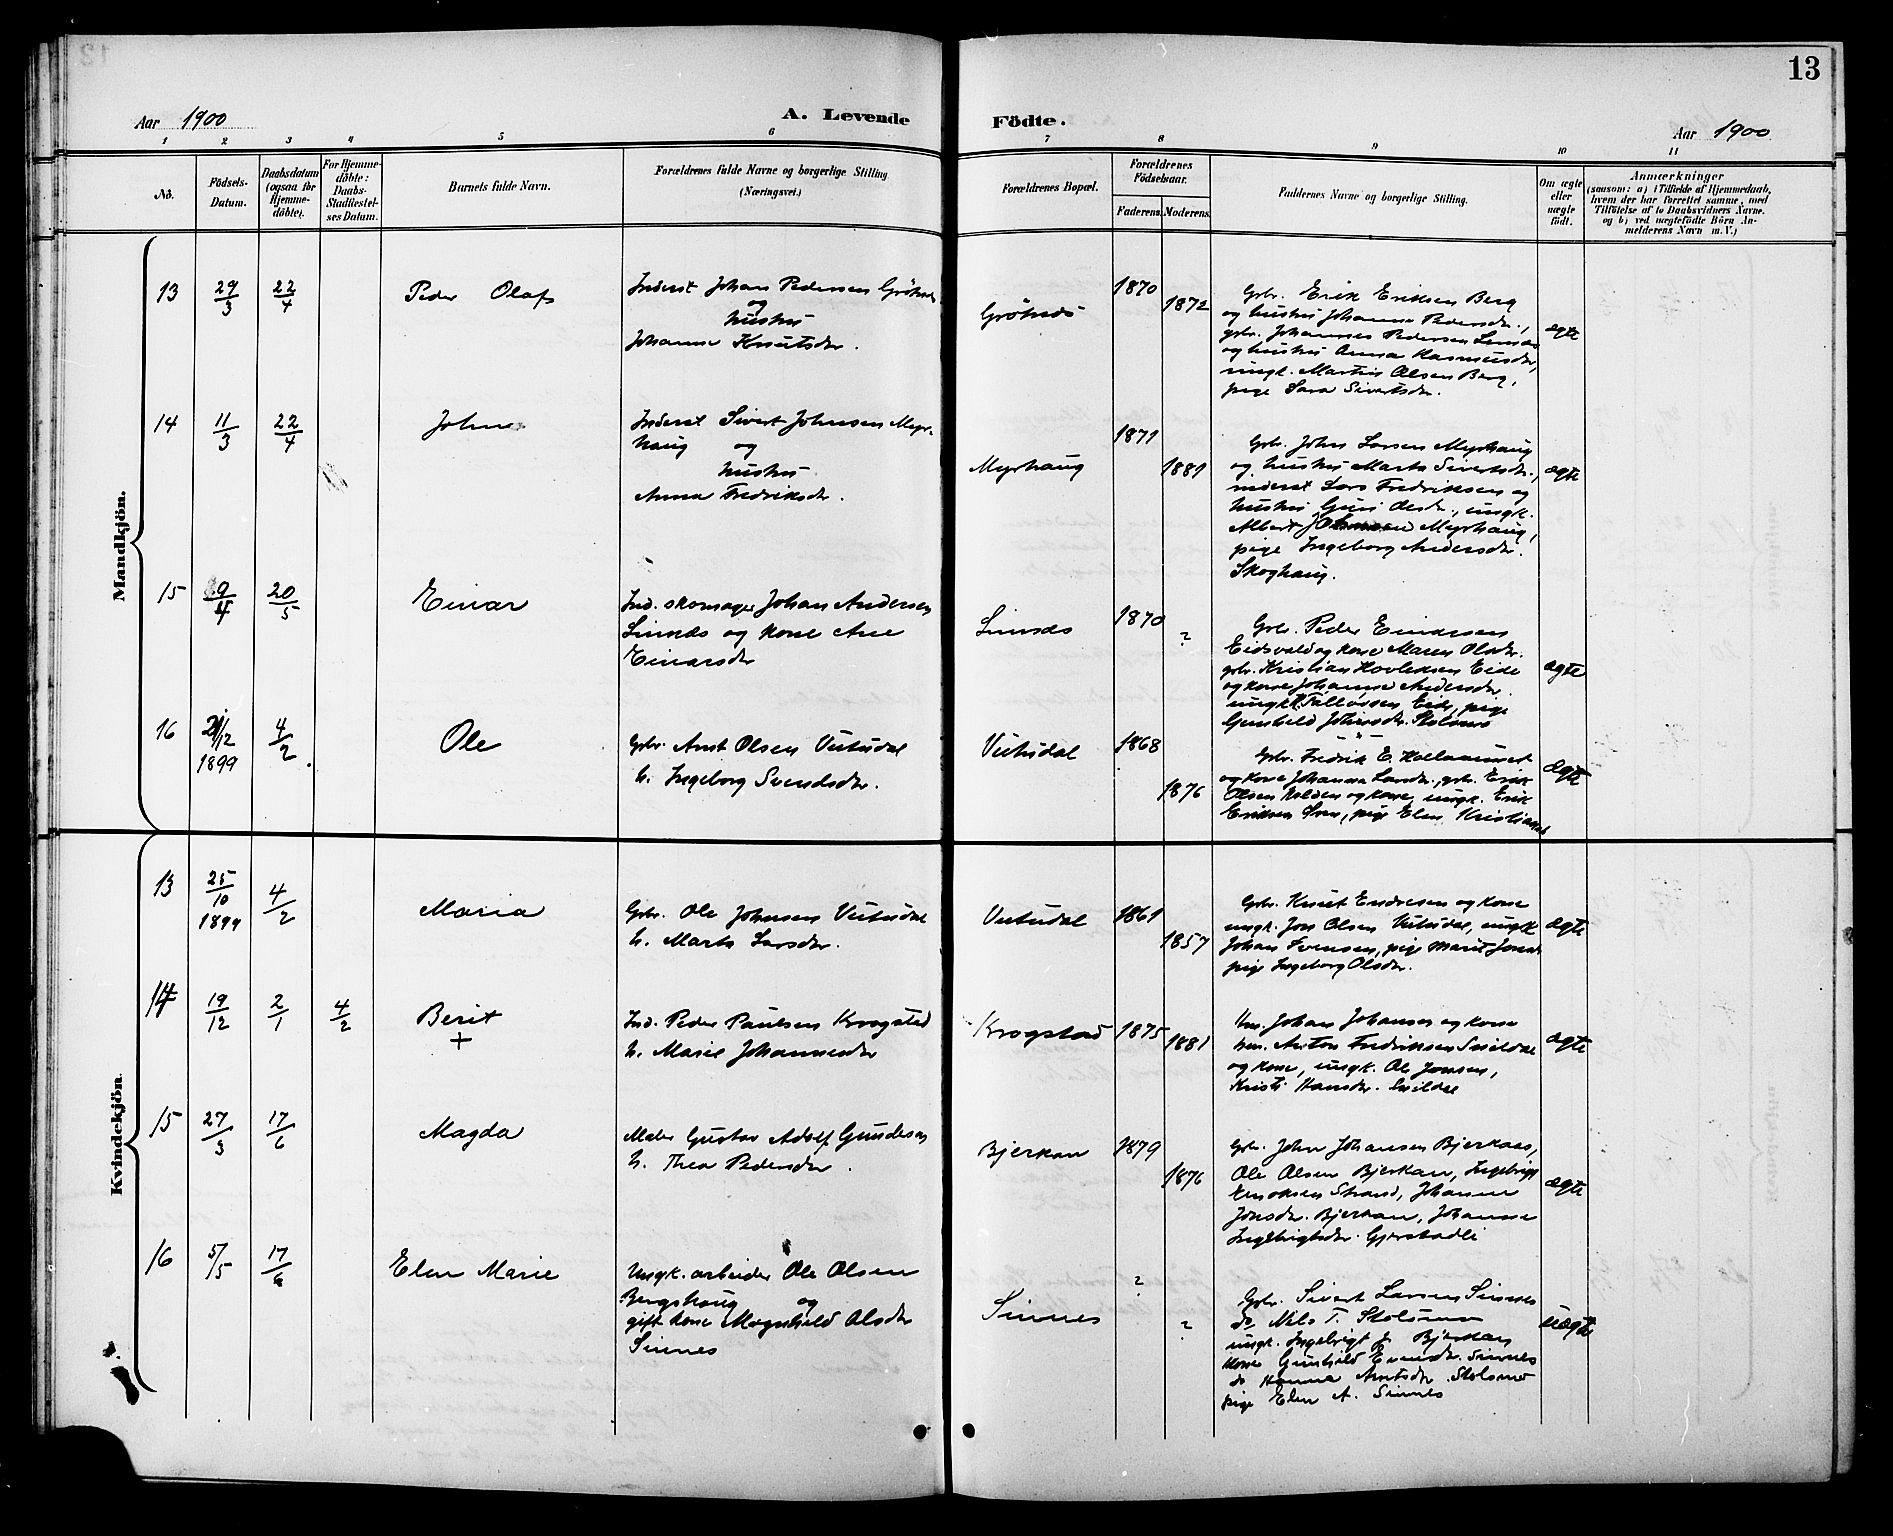 13
Aar 1900
A. Levende
Födte.
Aar 1900
1 2 3 4 5 6 7 8 9 10 11
No.
Födsels-
Datum.
Daabsdatum
(ogsaa for
Hjemme-
döbte).
For Hjemme-
döbte:
Daabs-
Stadfæstel-
ses Datum.
Barnets fulde Navn.
Forældrenes fulde Navne og borgerlige Stilling
(Næringsvei.)
Forældrenes Bopæl.
Forældrenes
Födselsaar.
Faderens. Moderens.
Faddernes Navne og borgerlige Stilling.
Om ægte
eller
uægte
födt.
Anmærkninger
(saasom: a) i Tilfælde af Hjemmedaab,
hvem der har forrettet samme, med
Tilföielse af to Daabsvidners Navne.
og b) ved uægtefödte Börn An-
melderens Navn m. V.)
Mandkjön.
13 29/3 22/4 Peder Olaf
Inderst Johan Pedersen
og
hustru
Johanna Knutsdr.
1870 1872
Gbr. Erik Eriksen Berg
og hustru Johanna Pedersdr.,
gbr. Johannes Pedersen
og hustru Anna Rasmusdr.,
ungk. Martin Olsen Berg,
pige Sara Sivertsdr.
ægte
14 11/3 22/4 John
Inderst Sivert Johnsen Myr-
haug og
hustru
Anna Fredriksdr.
Myrhaug 1871 1881
Gbr. John Larsen Myrhaug
og hustru Marta Sivertsdr.,
inderst Lars Fredriksen og
hustru Guri Olsdr., ungk.
Albert Johnsen Myrhaug,
pige Ingeborg Andersdr.
Skoghaug.
ægte
15 9/4 20/5 Einar
Ind. skomager Johan Andersen
og kone Ane
Einarsdr
1870 ?
Gbr. Peder
Eidsvald og kone Maren Olsdr.
gbr. Kristian Eide
og kone Johanna Andersdr.
ungk. Eide, pige
Gunhild Johnsdr. Stolsmo
ægte
16 21/12 1899 4/2 Ole
Gbr. Arnt Olsen Vutudal
h. Ingeborg Svendsdr.
Vutudal 1868 1876
Gbr. Fredrik E.
og kone Johanna Larsdr., gbr. Erik
Olsen Holden og kone, ungk. Erik
Eriksen, pige Elen
Ægte
Kvindekjön.
13 25/10 1899 4/2 Maria
Gbr. Ole Johnsen Vutudal
h. Marta Larsdr.
Vutudal 1861 1857
Gbr. Knut Endresen og kone
ungk. Jon Olsen Vutudal, ungk
Johan Svensen, pige Marit
pige Ingeborg Olsdr.
ægte
14 19/12 2/1 4/2 Berit
+
Ind. Peder Paulsen Krogstad
h. Marie Johannesdr
Krogstad 1875 1881
Hm. Johan Johansen og kone
hm. Anton Fredriksen Snildal
og kone, ungk. Ole Jonsen,
Kristi Hansdr. Snildal
ægte
15 27/3 17/6 Magda
Maler Gustav Adolf Gundersen
h. Thea Pedersdr.
Bjerkan 1879 1876
Gbr. John Johansen Bjerkaas,
Ole Olsen Bjerkan, Ingebrigt
Eriksen Strand, Johanna
Jonsdr. Bjerkan, Johanna
Ingebrigtsdr. Gjerstadli
ægte
16 5/5 17/6 Elen Marie
Ungk. arbeider Ole Olsen
Bergshaug og
gift kone Magnhild Olsdr
Sinnes
Sinnes ? ?
Gbr. Sivert Larsen Sinnes
do Nils T. Stolsmo
ungk. Ingebrigt J. Bjerkan
Kone Gunhild Evensdr. Sinnes
do Hanna Arntsdr. Stolsmo
pige Elen A. Sinnes
uægte